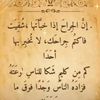 إنّ الجراحَ إذا خبّأتَها شُفيَت
فاكتُم جراحكَ، لا تُخبِر بها
أحَدًا
كم مِن كليمٍ شكا للناسِ لوعتَهُ
فزادهُ الناسُ وَجدًا فوقَ ما